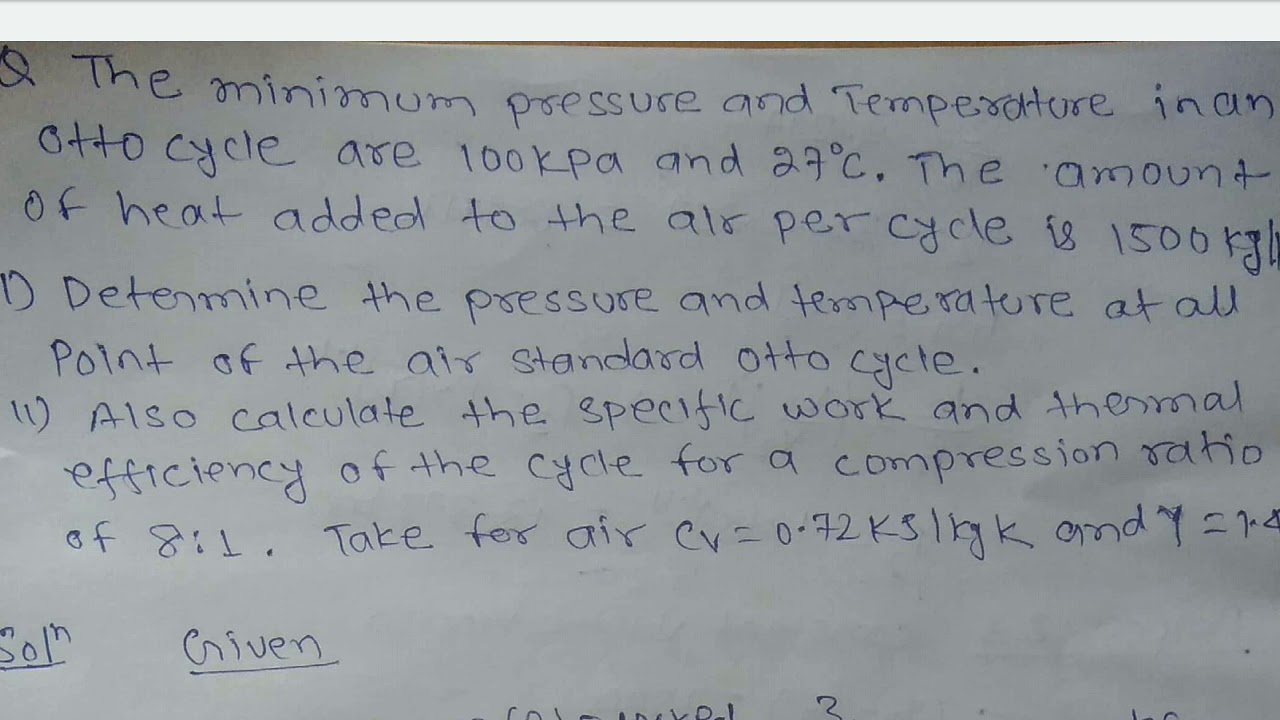 Q The minimum pressure and Temperature in an
Otto cycle are 100kpa and 27°C. The amount
Of heat added to the air per cycle is 1500 kg/
I) Determine the pressure and temperature at all
Point of the air standard otto cycle.
II) Also calculate the specific work and thermal
efficiency of the cycle for a compression ratio
of 8:1. Take for air Cv = 0.72 KJ/kg k and γ = 1.4
Solⁿ Given